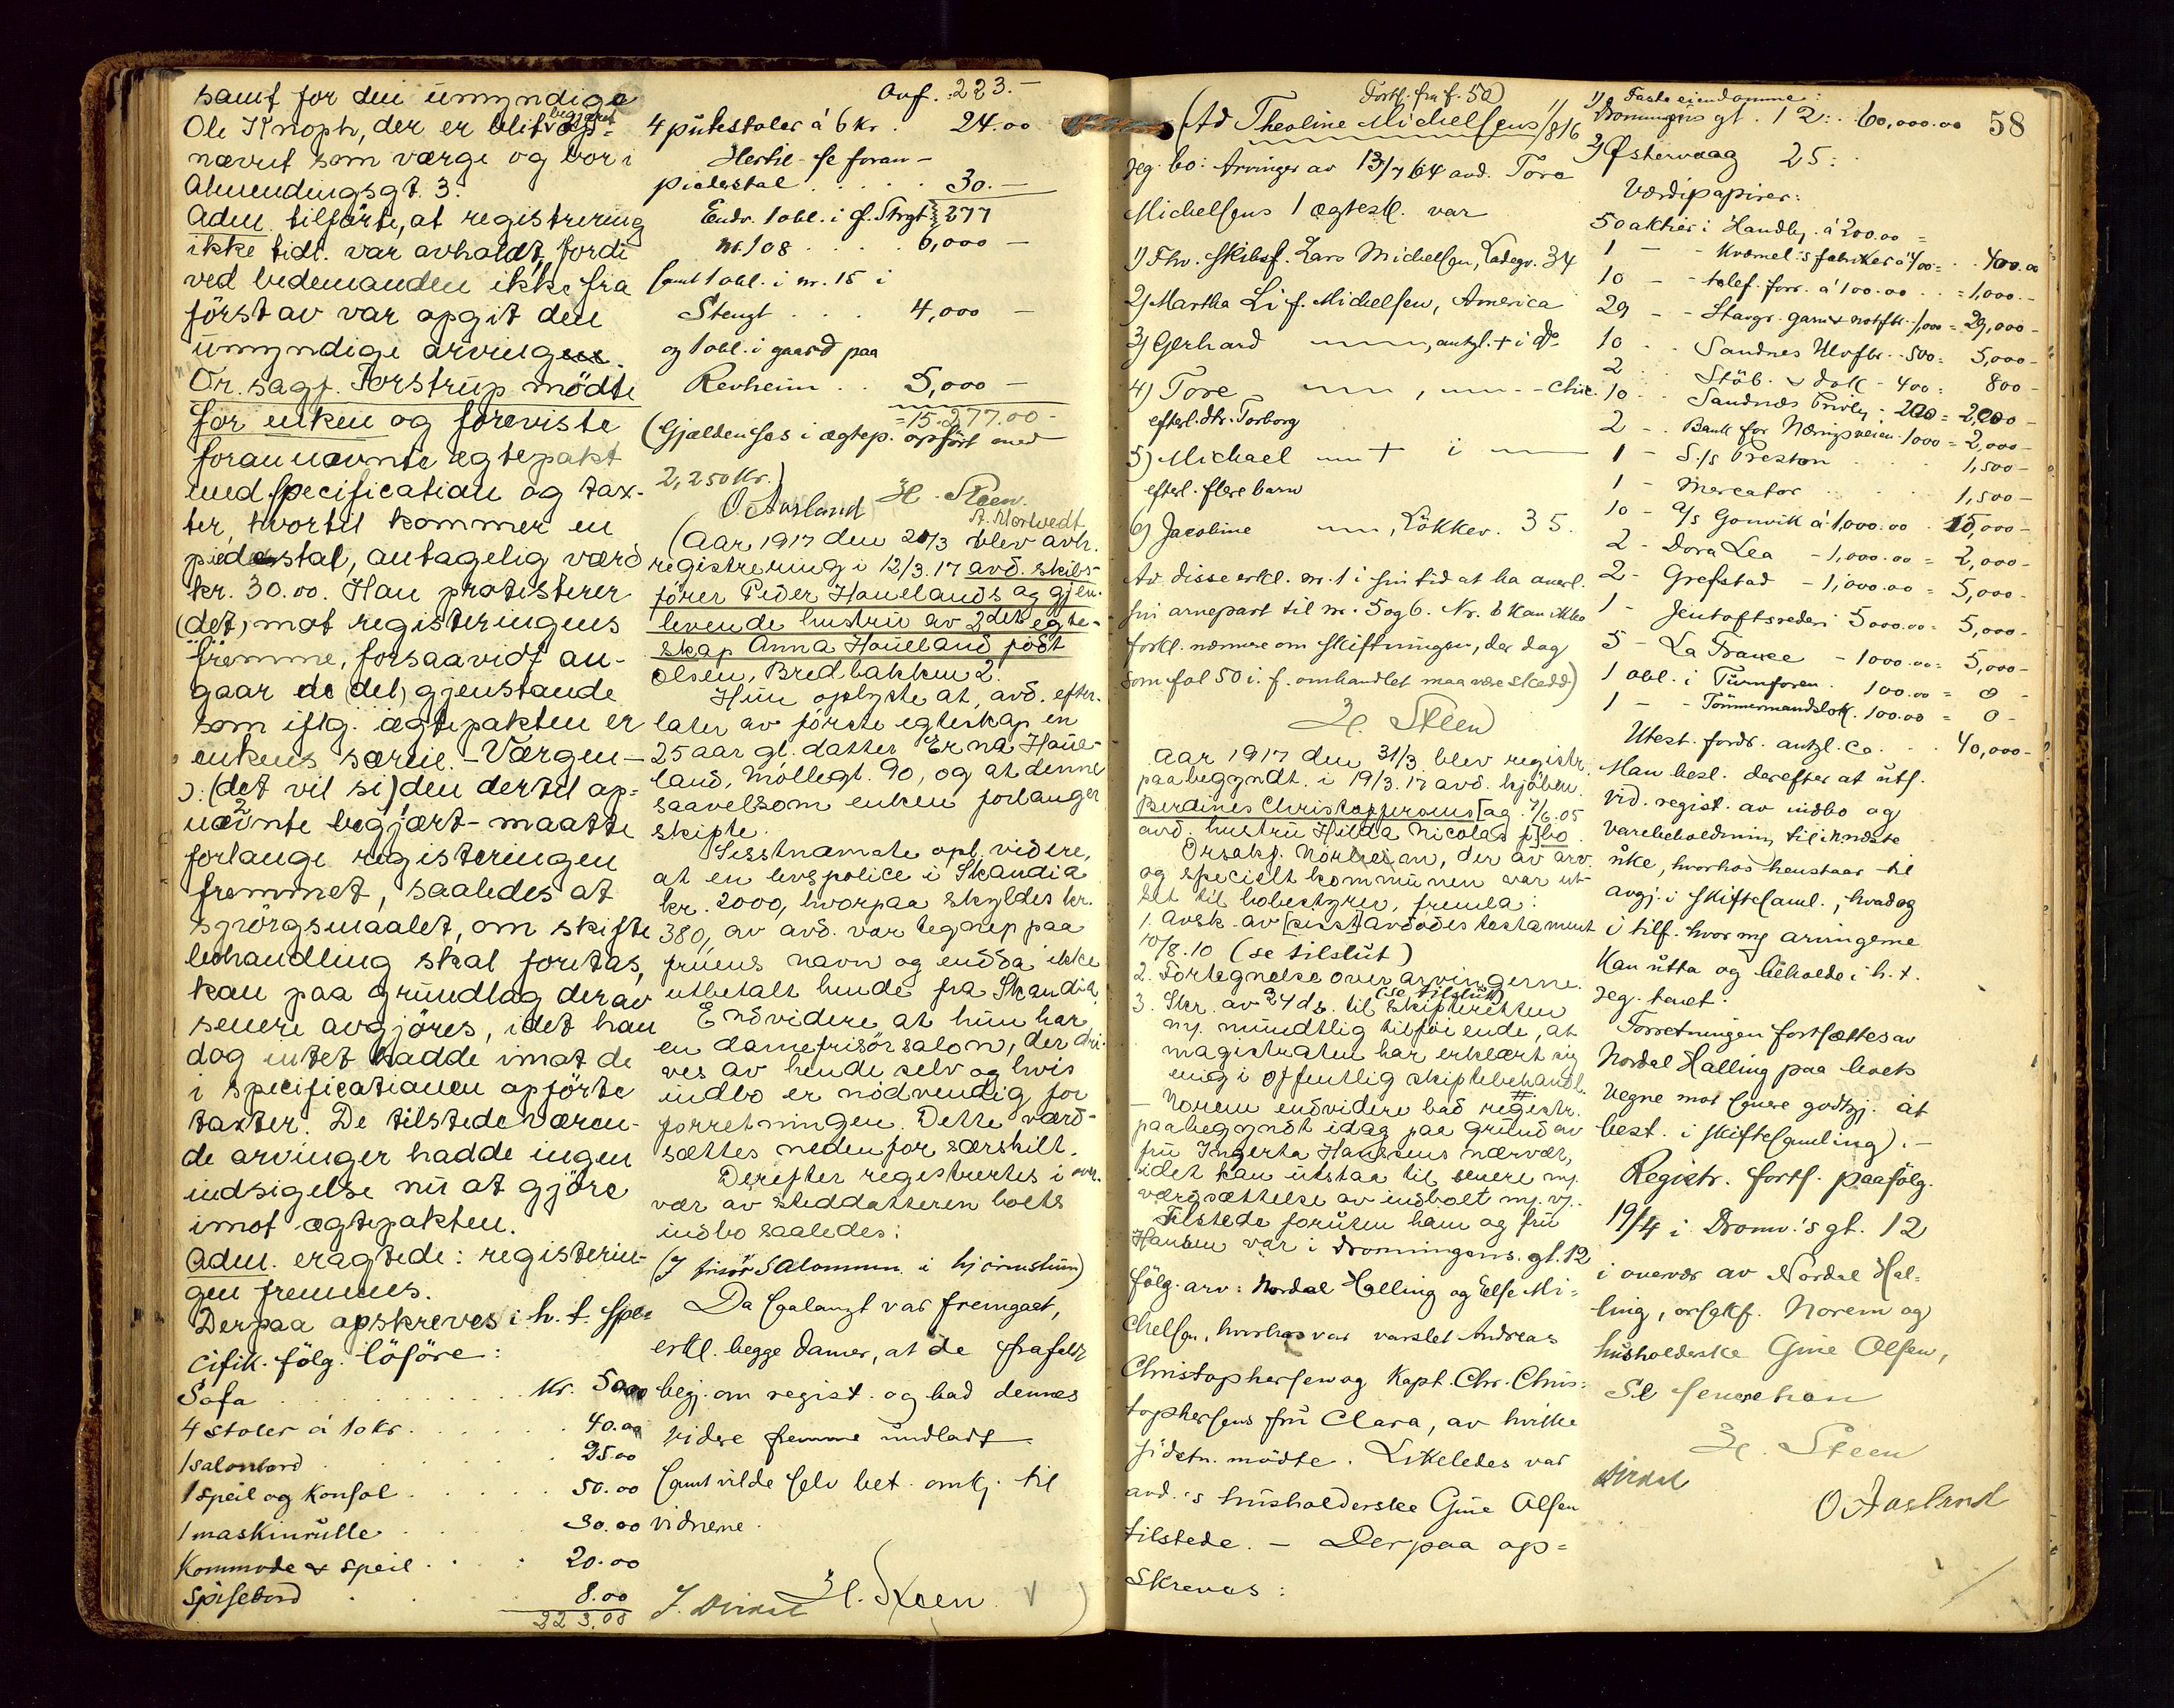 samt for den umyndige
Ole Knoph, der er blit begjæret op-
nævnt som værge og bor i
Almendingsgt. 3.
Adm. tilførte, at registrering
ikke tidl. var avholdt, fordi
ved bedemanden ikke fra
først av var opgit den
umyndige arvingen.
Or. sagf. Torstrup mødte
for enken og foreviste
forannævnte egtepakt
med specification og tax-
ter, hvortil kommer en
piedestal, antagelig værd
kr. 30.00. Han protisterer
(det) mot registeringens
fremme, forsaavidt an-
gaar de (det) gjenstande
som iflg. ægtepakten er
enkens særeie. - Værgen -
ɔ: (det vil si) den dertil op-
nævnte begjært - maatte
forlange registeringen
fremmet, saaledes at
spørgsmaalet, om skifte
behandling skal foretas,
kan paa grundlag derav
senere avgjøres, idet han
dog intet hadde imot de
i specificationen opførte
taxter. De tilstedeværen-
de arvinger hadde ingen
indsigelse nu at gjøre
imot ægtepakten.
Adm. eragtede: registerin-
gen fremmes.
Derpaa opskreves i h. t. spe-
cifik. følg. løsøre:
Sofa . . . Kr. 50.00
4 stoler á 10 kr. . . . 40.00
1 salonbord . . . 25.00
1 speil og konsol . . . 50.00
1 maskinrulle . . . 30.00
Kommode & speil . . . 20.00
Spisebord . . . 8.00
223.00
Ovf. 223.-
4 pütestoler á 6 kr. . 24.00
Hertil - se foran -
piedestal . . . . . 30.-
Endv. 1 obl. i gl. Strgt 277
nr. 108 . . . . 6,000 -
samt 1 obl. i nr. 15 i
Stengt . . . 4,000 -
og 1 obl. i gaard paa
Revheim . . 5,000 -
= 15.277.00 -
(Gjælden sees i ægtep. opført med
2,250 Kr.)
O. Aasland H. Steen
(Aar 1917 den 20/3 blev avh.
registrering i 12/3.17 avd. skibs-
fører Peder Hauelands og gjen-
levende hustru av 2det egte-
skap Anna Haueland født
Olsen, Bredbakken 2.
Hun oplyste at, avd. efter-
later av første egteskap en
25 aar gl. datter Erna Haue-
land, Møllegt. 90, og at denne
saavelsom enken forlanger
skifte.
Sisstnævnte opl. videre,
at en livspolice i Skandia
kr. 2000, hvorpaa skyldes kr.
380, av avd. var tegnet paa
fruens navn og endda ikke
utbetalt hende fra Skandia.
Endvidere at hun har
en damefrisørsalon, der dri-
ves av hende selv og hvis
indbo er nødvendig for
forretningen. Dette værd-
sættes nedenfor særskilt.
Derefter registrertes i over-
vær av steddatteren boets
indbo saaledes:
(I frisørsalonen i hjørnestuen)
Da saalangt var fremgaaet,
erkl. begge damer, at de frafaldt
begj. om regist. og bad dennes
videre fremme undladt
samt vilde selv bet. omk. til
vidnerne.
H. Steen
Fortf. fra f. 50)
(Ad Theoline Michelsens 1/8 16
jeg. bo: Arvinger av 13/7 64 avd. Tore
Michelsens 1 ægtesk. var
1) Fhv. skibsf. Lars Michelsen, Ladegv. 34
2) Martha Li f. Michelsen, America
3) Gerhard —, antgl. + i do
4) Tore — , — - Chic.
efterl. dtr. Torborg
5) Michael — + i —
efterl. flere barn
6) Jacobine — , Løkkev. 35.
Av disse erkl. nr. 1 i sin tid at ha overl.
sin arvepart til nr. 5 og 6. Nr. 6 kan ikke
forkl. nærmere om skiftningen, der dog
som fol 50 i. f. omhandlet maa være skedd)
H. Steen
Aar 1917 den 31/3 blev registr.
paabegyndt i 19/3.17 avd. kjøbm.
Perdines Christoffersens [og 7/6.05
avd. hustru Hilda Nicolas f] bo.
Orsakf. Norheim, der av arv.
og specielt kommunen var ut-
set til bobestyrer, fremla:
1. Avsk. av [sisst] avdødes testament
10/8.10 (se tilslut)
2. Fortegnelse over arvingerne.
(se tilslut)
3. Skr. av 24 ds. til skifteretten
mj. mundtlig tilføiende, at
magistraten har erklært sig
enig i offentlig skiftebehandl.
- Norem endvidere bad registr.
paabegyndt idag paa grund av
fru Ingerta Hansens nærvær,
idet kan utstaa til senere mj.
værdsættelse av indboet mj. vj.
Tilstede foruten ham og fru
Hansen var i Dronningens gt. 12
følg. arv: Nordal Halling og Else Mi-
chelsen, hvorhos var varslet Andreas
Christophersen og Kapt. Chr. Chris-
tophersens fru Clara, av hvilke
sidstn. mødte. Likeledes var
avd.'s husholderske Gine Olsen
tilstede. - Derpaa op-
skreves:
58
1) Faste eiendomme:
Dronningens gt. 12: . 60,000.00
2) Østervaag 25: .
Værdipapirer:
50 aktier i Handelsb. á 200.00 =
1 - - Kværnel.'s fabriker á 400 = . . 400.00
10 - - telef. forr. á 100.00 . . = 1,000.-
29 - - Stavgr. garn & notfbr. 1,000 = 29,000-
10 . . Sandnes Ulvfbr. . 500 = 5,000-
2 . . Støb. & dok - 400 = 800 -
10 - . Sandnes Privb. - 200 = 2,000 -
2 - . Bank for Næringsveien 1000 = 2,000-
1 - S./s Preston . . . 1,500-
1 - Mercator . . . 1,500 -
10 - a/s Gonvik á 1,000.00 . 15,000-
2 - Dora Lea - 1,000.00 = 2,000-
2 - Grefstad - 1,000.00 = 5,000-
1 - Jentoftsrederi 5000.00 = 5,000-
5 - La France - 1000.00 = 5,000-
1 obl. i Turnforen. 100.00 = 0 -
1 - - Tømmermandslok. 100.00 = 0 -
Utest. fordr. antgl. ca. . . 40,000-
Man besl. derefter at uts.
vid. regist. av indbo og
varebeholdning til næste
uke, hvorhos henstaar til
avgj. i skiftesaml., hvad og
i tilf. hvor mg arvingerne
kan utta og beholde i h. t.
jeg. tevet.
Forretningen fortsættes av
Nordal Halling paa boets
vegne mot senere godtgj. at
best. i skiftesamling). -
Registr. fortf. paafølg.
19/4 i Dronn.'s gt. 12
i overvær av Nordal Hal-
ling, orsakf. Norem og
husholderske Gine Olsen,
Se senere han
H. Steen
O Aasland